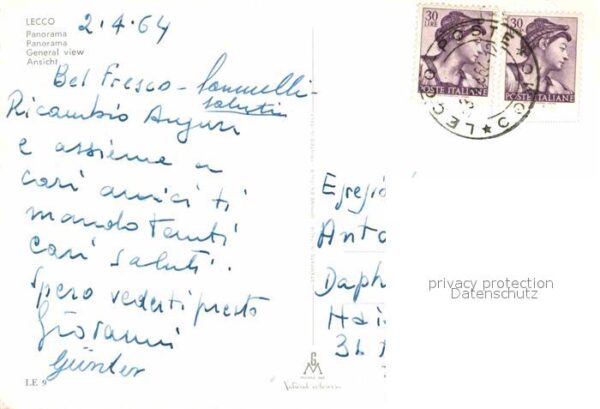 LECCO
Panorama
Panorama
General view
Ansicht
2.4.64
Bel Fresco -
saluti
Ricambio Auguri
e assieme a
cari amici ti
mando Tanti
cari saluti.
Spero vederti presto
Giovanni
Günter
LE 9
30
LIRE
POSTE ITALIANE
30
LIRE
POSTE ITALIANE
LECCO POSTE
Egregio
Anto
Daph
Hai
3b
privacy protection
Datenschutz